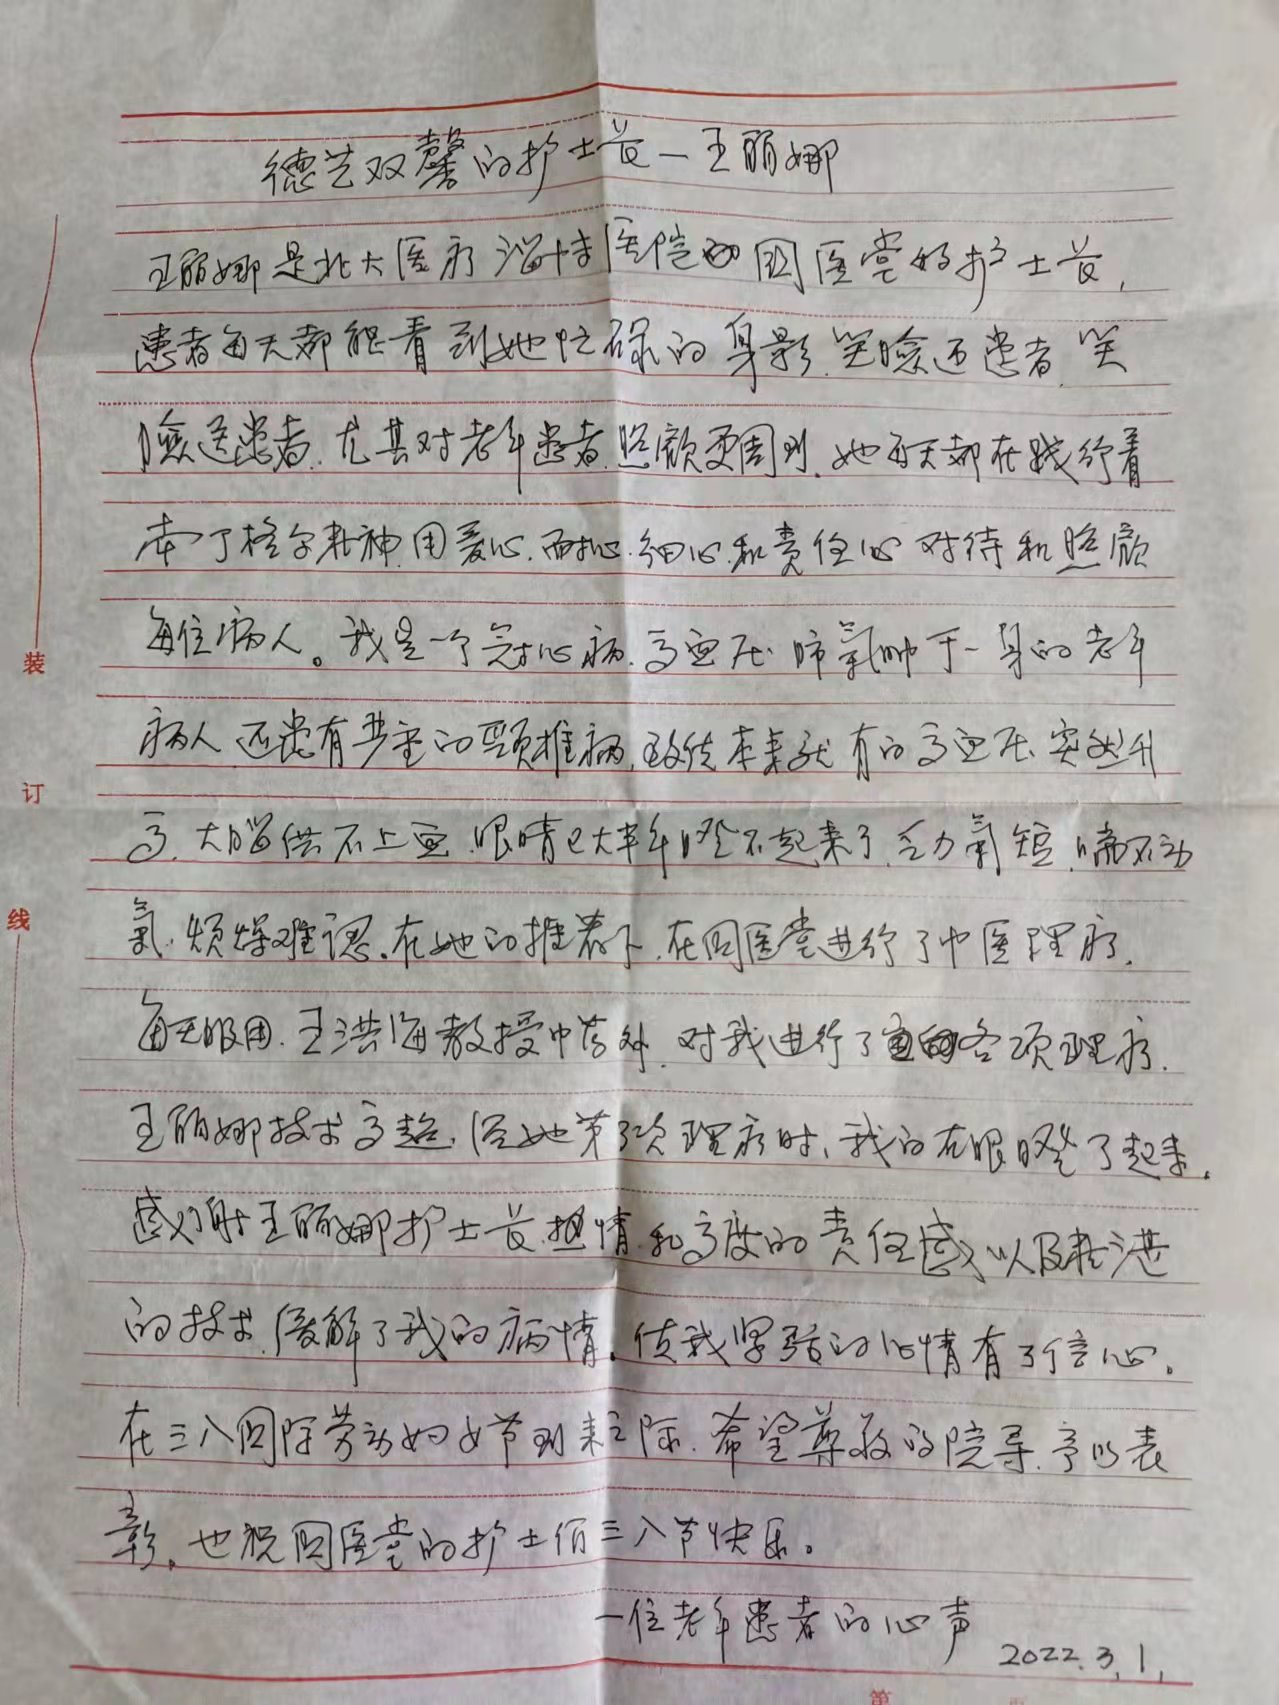 德艺双馨的护士长—王丽娜
王丽娜是北大医疗淄博医院的国医堂的护士长，
患者每天都能看到她忙碌的身影.笑脸迎患者.笑
脸送患者.尤其对老年患者.照顾更周到.她每天都在践行着
南丁格尔精神.用爱心.耐心.细心.和责任心对待和照顾
每位病人。我是一个冠心病.高血压.肺气肿于一身的老年
病人.还患有严重的颈椎病,致使本来就有的高血压.突然升
高.大脑供不上血.眼睛已大半年睁不起来了.乏力氣短.喘不动
氣.烦燥难忍.在她的推荐下.在国医堂进行了中医理疗.
每天服用.王洪海教授中药外.对我进行了各项理疗.
王丽娜技术高超,经她第3次理疗时,我的右眼睁了起来.
感谢王丽娜护士长.热情.和高度的责任感以及精湛
的技术.缓解了我的病情.使我紧张的心情有了信心。
在三八国际劳动妇女节到来之际.希望尊敬的院导.予以表
彰.也祝国医堂的护士们三八节快乐。
一位老年患者的心声
2022.3.1.
装
订
线
第